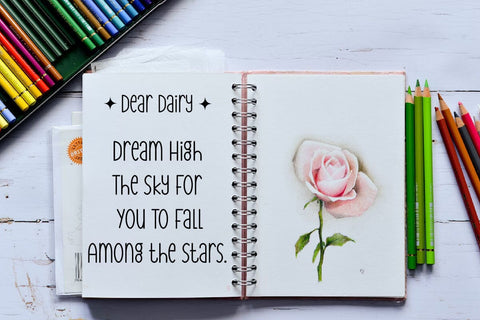 Dear Dairy
Dream High
The Sky For
You To Fall
Among the Stars.